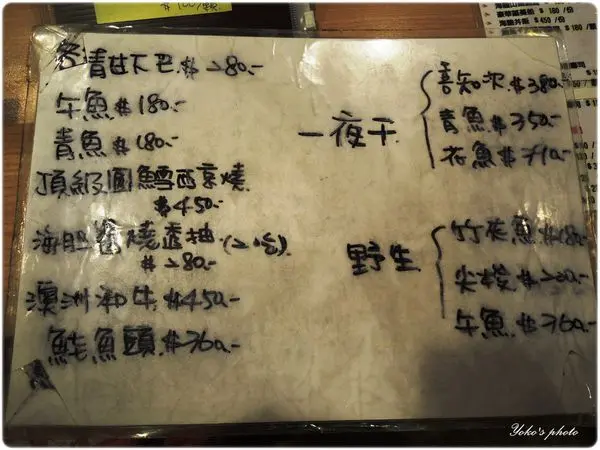 $100/顆
海膽
豪華 $180/份
海膽丼飯 $450/份
青甘下巴 $280.-
午魚 $180.-
青魚 $180.-
頂級圓鱈西京燒
$450.-
海胆 燒透抽
$280.-
澳洲和牛 $450.-
鮭魚頭 $360.-
一夜干
喜知次 $380.-
青魚 $350.-
花魚 $410.-
野生
竹筴魚 $180.-
尖梭 $200.-
午魚 $360.-
Yoko's photo